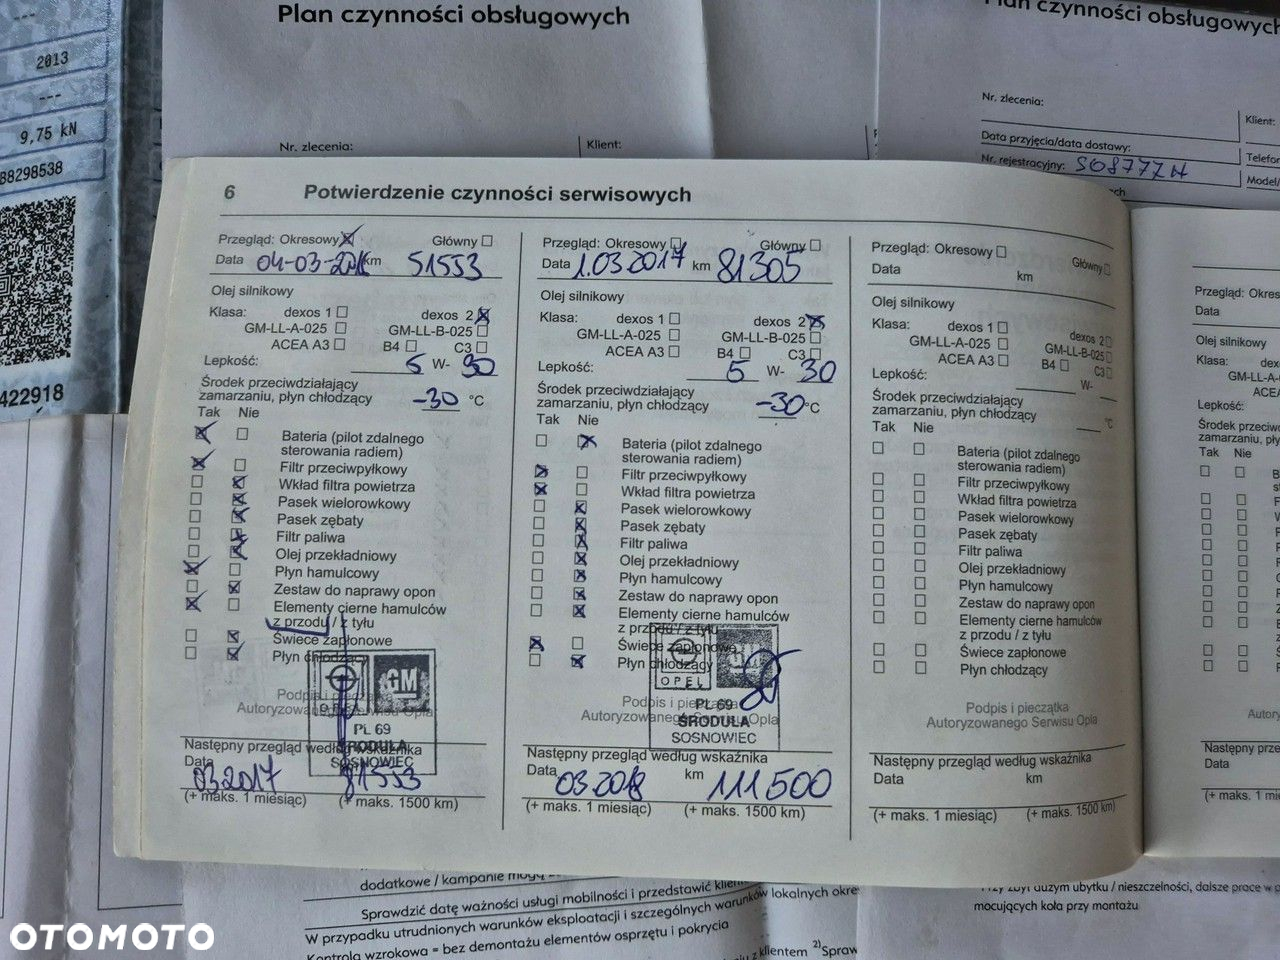 2013
9,75 kN
88298538
422918
Plan czynności obsługowych
Nr. zlecenia:
Klient:
Plan czynności obsługowych
Nr. zlecenia:
Klient:
Data przyjęcia/data dostawy:
Nr. rejestracyjny:
Model/
6 Potwierdzenie czynności serwisowych
Przegląd: Okresowy ☒ Główny ☐
Data 04-03-2016 km 51553
Olej silnikowy
Klasa: dexos 1 ☐ dexos 2 ☒
GM-LL-A-025 ☐ GM-LL-B-025 ☐
ACEA A3 ☐ B4 ☐ C3 ☐
Lepkość: 5 W- 30
Środek przeciwdziałający
zamarzaniu, płyn chłodzący -30 °C
Tak Nie
Bateria (pilot zdalnego
sterowania radiem)
Filtr przeciwpyłkowy
Wkład filtra powietrza
Pasek wielorowkowy
Pasek zębaty
Filtr paliwa
Olej przekładniowy
Płyn hamulcowy
Zestaw do naprawy opon
Elementy cierne hamulców
z przodu / z tyłu
Świece zapłonowe
Płyn chłodzący
OPEL
GM
Podpis i pieczątka
Autoryzowanego Serwisu Opla
PL 69
ŚRODULA
SOSNOWIEC
Następny przegląd według wskaźnika
Data 03.2017 km 81553
(+ maks. 1 miesiąc) (+ maks. 1500 km)
Przegląd: Okresowy ☐ Główny ☐
Data 1.03.2017 km 81305
Olej silnikowy
Klasa: dexos 1 ☐ dexos 2 ☒
GM-LL-A-025 ☐ GM-LL-B-025 ☐
ACEA A3 ☐ B4 ☐ C3 ☐
Lepkość: 5 W- 30
Środek przeciwdziałający
zamarzaniu, płyn chłodzący -30 °C
Tak Nie
Bateria (pilot zdalnego
sterowania radiem)
Filtr przeciwpyłkowy
Wkład filtra powietrza
Pasek wielorowkowy
Pasek zębaty
Filtr paliwa
Olej przekładniowy
Płyn hamulcowy
Zestaw do naprawy opon
Elementy cierne hamulców
z przodu / z tyłu
Świece zapłonowe
Płyn chłodzący
OPEL
GM
Podpis i pieczątka
Autoryzowanego Serwisu Opla
PL 69
ŚRODULA
SOSNOWIEC
Następny przegląd według wskaźnika
Data 03.2018 km 111500
(+ maks. 1 miesiąc) (+ maks. 1500 km)
Przegląd: Okresowy ☐ Główny ☐
Data km
Olej silnikowy
Klasa: dexos 1 ☐ dexos 2 ☐
GM-LL-A-025 ☐ GM-LL-B-025 ☐
ACEA A3 ☐ B4 ☐ C3 ☐
Lepkość: W-
Środek przeciwdziałający
zamarzaniu, płyn chłodzący °C
Tak Nie
Bateria (pilot zdalnego
sterowania radiem)
Filtr przeciwpyłkowy
Wkład filtra powietrza
Pasek wielorowkowy
Pasek zębaty
Filtr paliwa
Olej przekładniowy
Płyn hamulcowy
Zestaw do naprawy opon
Elementy cierne hamulców
z przodu / z tyłu
Świece zapłonowe
Płyn chłodzący
Podpis i pieczątka
Autoryzowanego Serwisu Opla
Następny przegląd według wskaźnika
Data km
(+ maks. 1 miesiąc) (+ maks. 1500 km)
Przegląd: Okres
Data
Olej silnikowy
Klasa: dex
GM-LL-A-
ACEA
Lepkość:
Środek przeciwdz
zamarzaniu, pły
Tak Nie
Autory
Następny prze
Data
(+ maks. 1 mie
dodatkowe / kampanie
Sprawdzić datę ważności usługi mobilności i przedstawić klien
W przypadku utrudnionych warunków eksploatacji i szczególnych warunków lokalnych okre
Kontrola wzrokowa = bez demontażu elementów osprzętu i pokrycia
z klientem 2)Spraw
Przy zbyt dużym ubytku / nieszczelności, dalsze prace w p
mocujących koła przy montażu
OTOMOTO